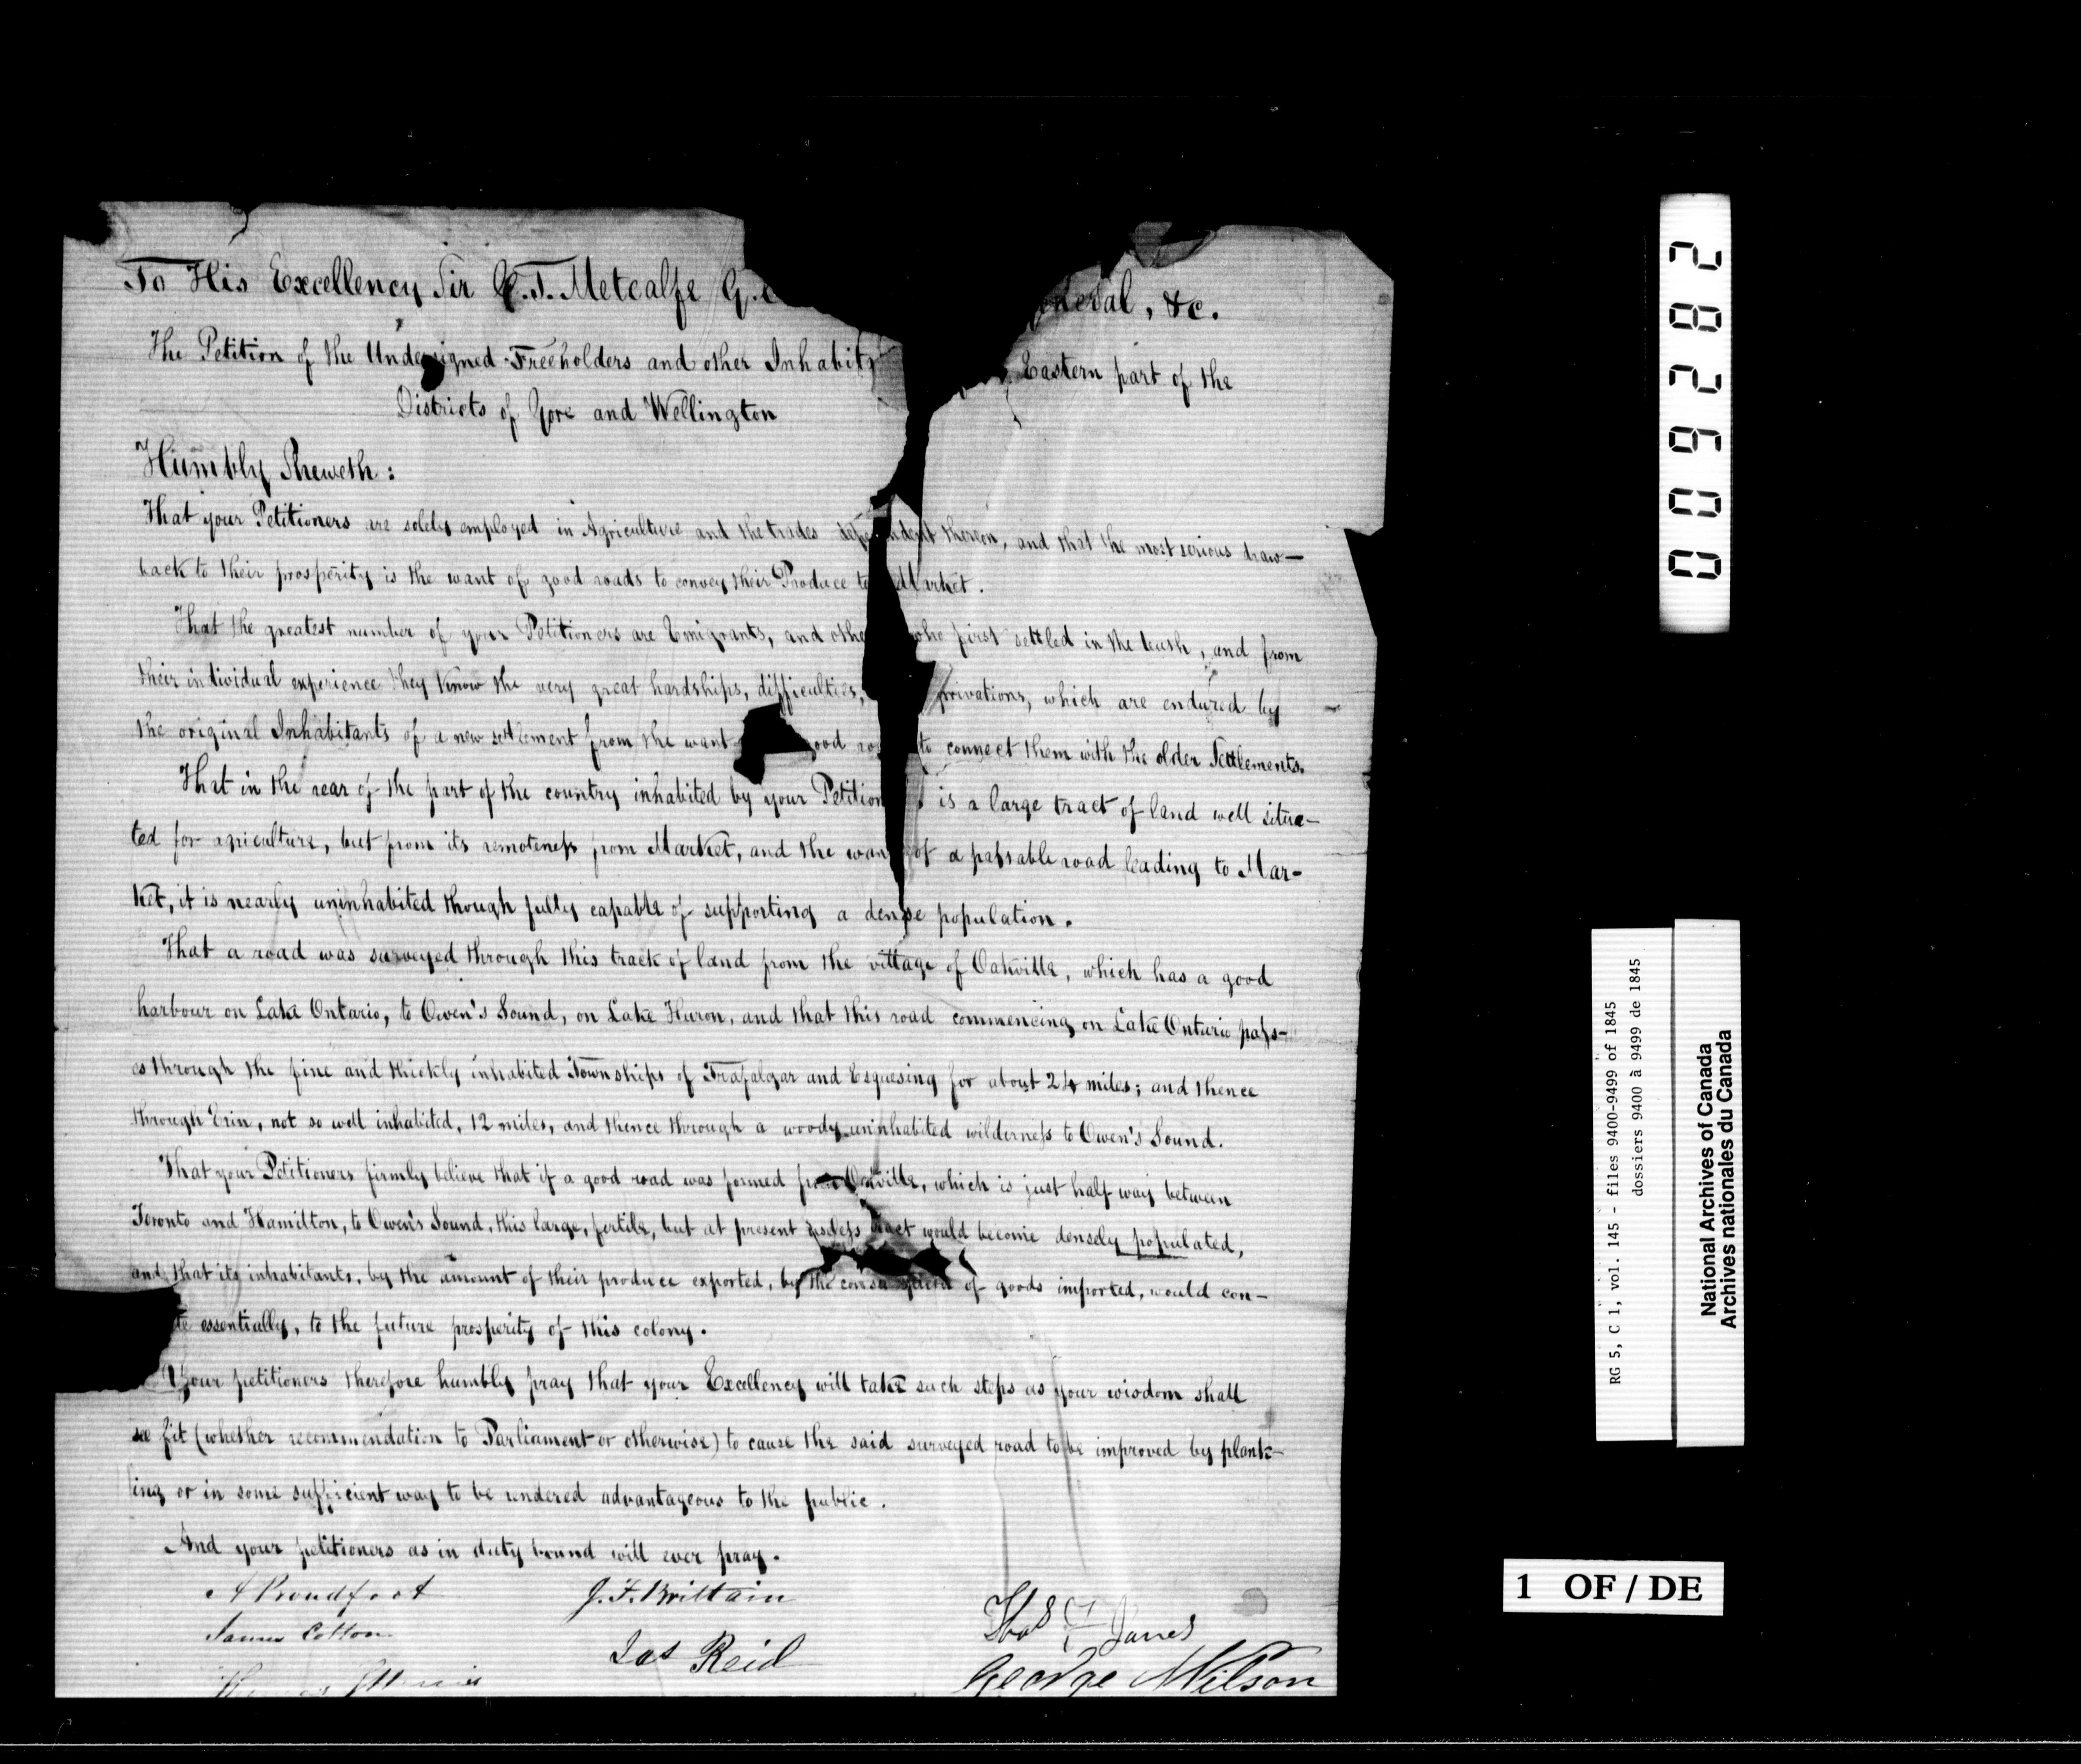 To His Excellency Sir C. T. Metcalfe G.C neral, &c.
The Petition of the Undersigned Freeholders and other Inhabit Eastern part of the
Districts of Gore and Wellington
Humbly Sheweth:
That your Petitioners are solely employed in Agriculture and the trades dependent thereon, and that the most serious draw-
back to their prosperity is the want of good roads to convey their Produce to Market.
That the greatest number of your Petitioners are Emigrants, and othe who first settled in the bush, and from
their individual experience they know the very great hardships, difficulties, privations, which are endured by
the original Inhabitants of a new settlement from the want good ro to connect them with the older Settlements.
That in the rear of the part of the country inhabited by your Petition is a large tract of land well situa-
ted for agriculture, but from its remoteness from Market, and the want of a passable road leading to Mar-
ket, it is nearly uninhabited though fully capable of supporting a dense population.
That a road was surveyed through this track of land from the village of Oakville, which has a good
harbour on Lake Ontario, to Owen's Sound, on Lake Huron, and that this road commencing on Lake Ontario pass-
es through the fine and thickly inhabited Townships of Trafalgar and Esquesing for about 24 miles; and thence
through Erin, not so well inhabited, 12 miles, and thence through a woody uninhabited wilderness to Owen's Sound.
That your Petitioners firmly believe that if a good road was formed from Oakville, which is just half way between
Toronto and Hamilton, to Owen's Sound, this large, fertile, but at present useless tract would become densely populated,
and that its inhabitants, by the amount of their produce exported, by the consu of goods imported, would con-
te essentially, to the future prosperity of this colony.
Your petitioners therefore humbly pray that your Excellency will take such steps as your wisdom shall
see fit (whether recommendation to Parliament or otherwise) to cause the said surveyed road to be improved by plank-
ing or in some sufficient way to be rendered advantageous to the public.
And your petitioners as in duty bound will ever pray.
A Proudfoot J. F. Brittain
James Cotton Thos Janes
Jas Reid George Wilson
009282
RG 5, C 1, vol. 145 - files 9400-9499 of 1845
dossiers 9400 à 9499 de 1845
National Archives of Canada
Archives nationales du Canada
1 OF / DE